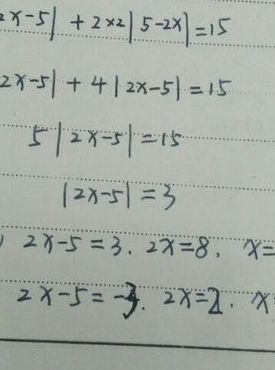 2x-5| + 2×2|5-2x|=15
2x-5| + 4|2x-5|=15
5|2x-5|=15
|2x-5|=3
) 2x-5=3. 2x=8, x=
2x-5=-3. 2x=2. x